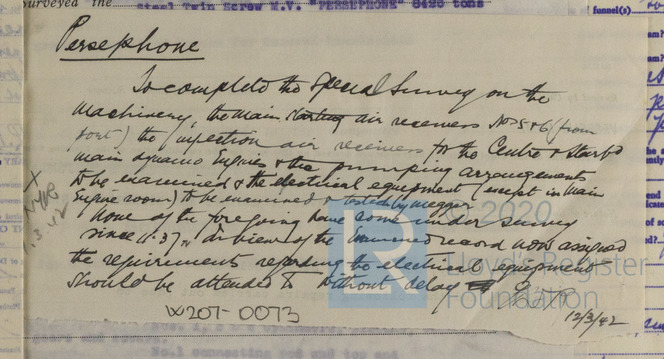 Surveyed the Steel Twin Screw M.V. "PERSEPHONE" 8426 tons
funnel(s)
Persephone
To complete the Special Survey on the
machinery, the main starting air receivers Nos 5 & 6 (from
port) the injection air receivers for the Centre & Starbd
main dynamo engines & the pumping arrangements
to be examined & the electrical equipment (except in main
engine room) to be examined & tested by megger
None of the foregoing have come under survey
since 11.37. In view of the record now assigned
the requirements regarding the electrical equipment
should be attended to without delay
12/3/42
X
3.42
W207-0073
© 2020
Lloyd's Register
Foundation
No.1 connecting rod and top end